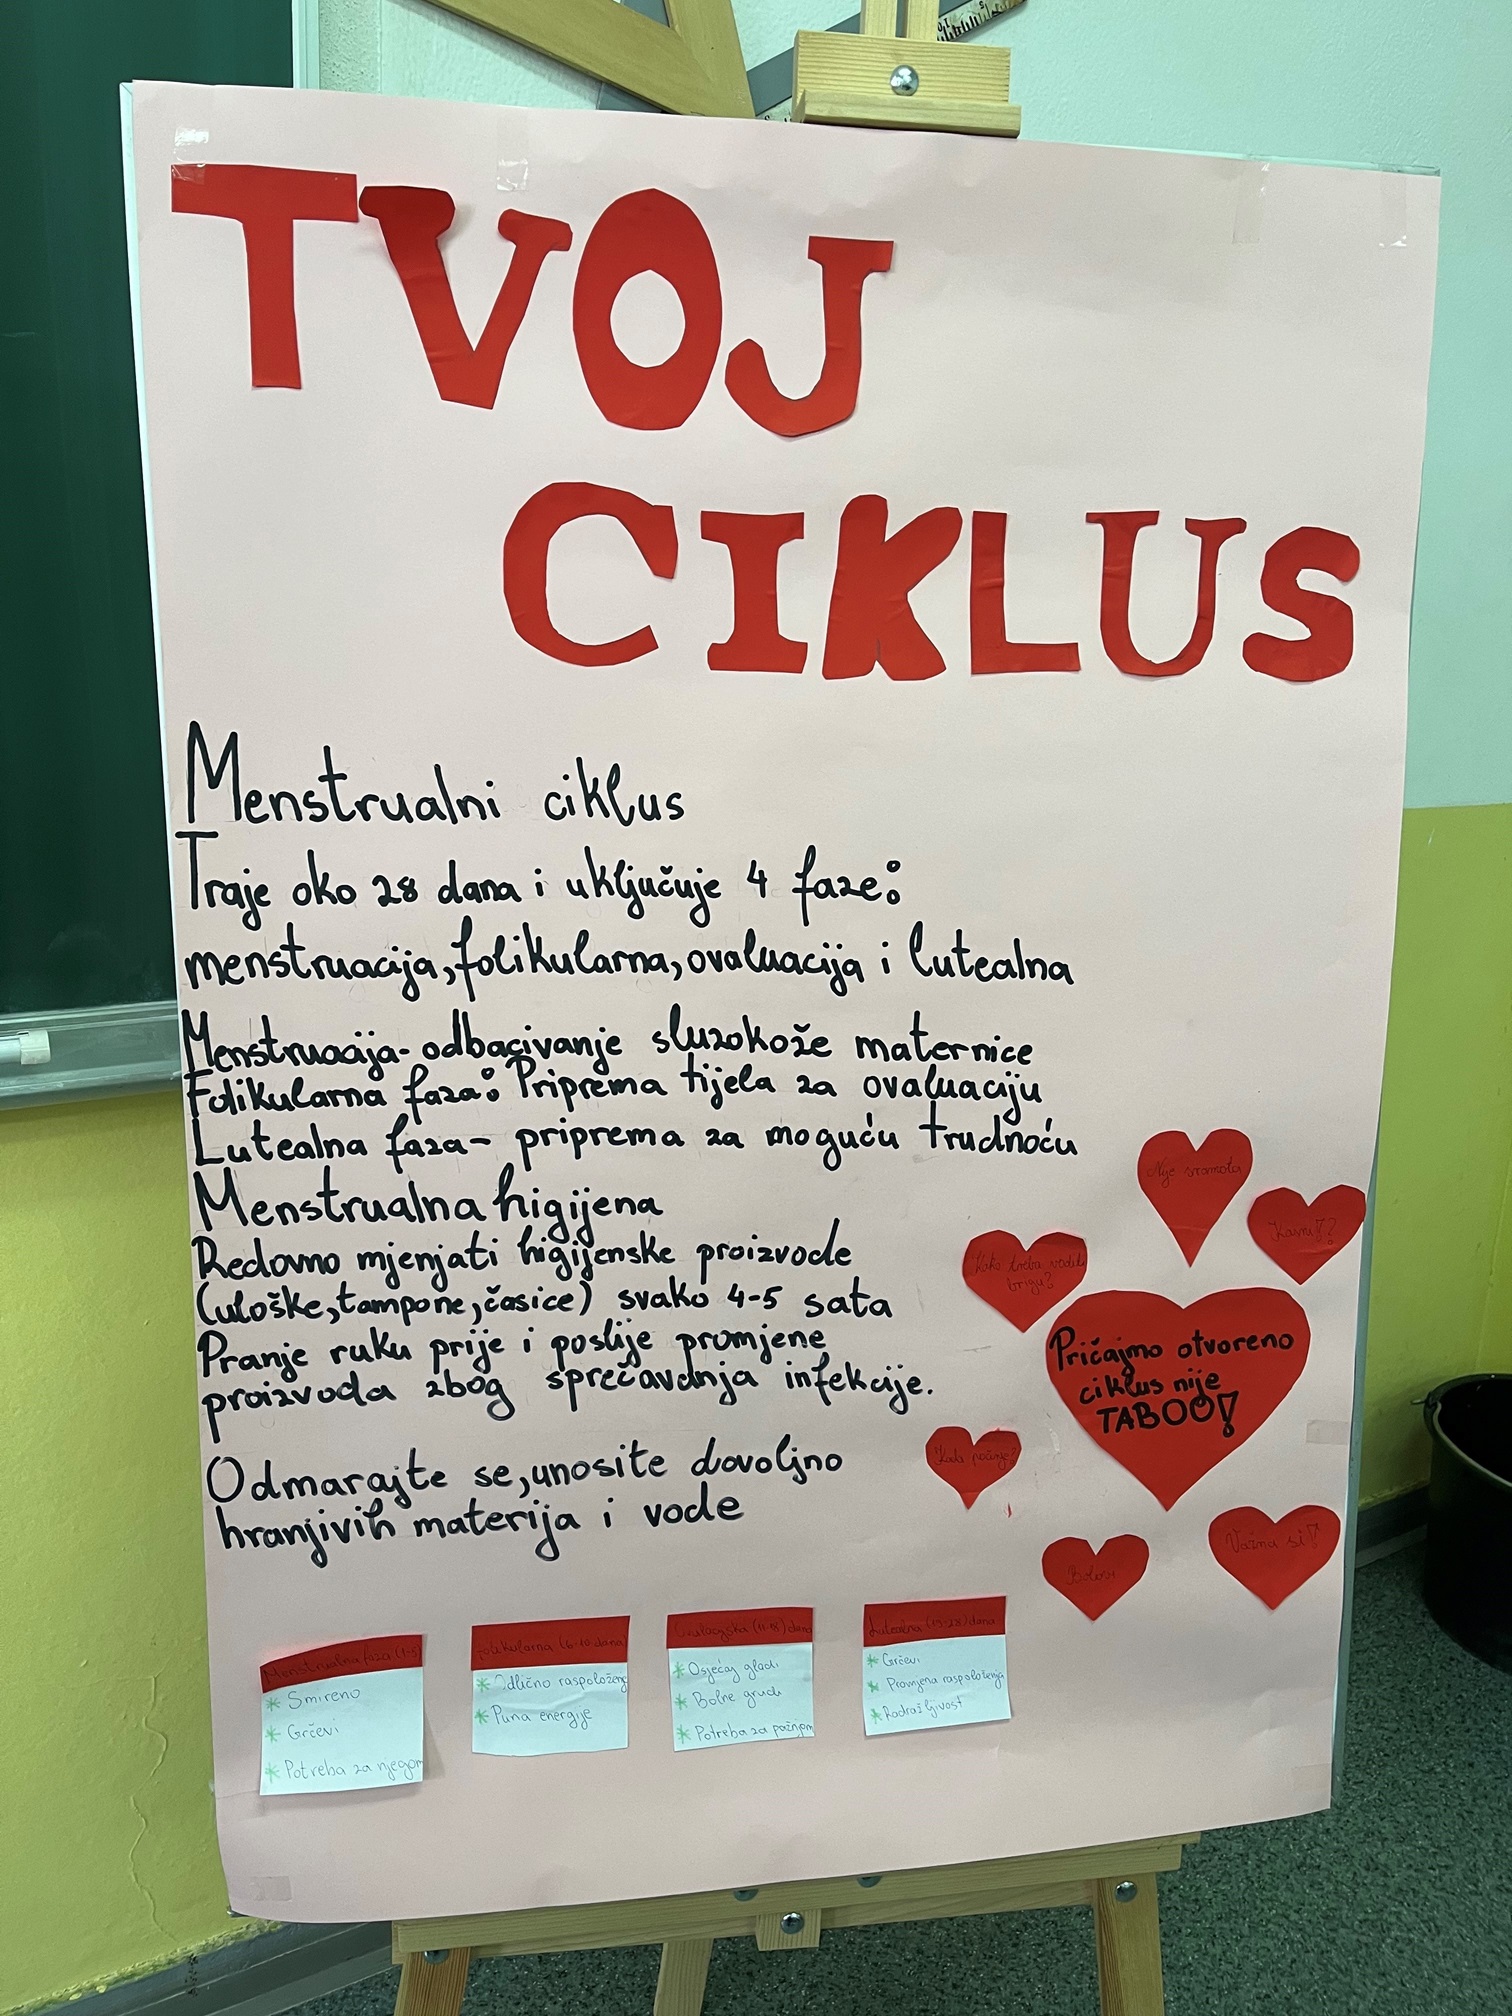 TVOJ
CIKLUS
Menstrualni ciklus
Traje oko 28 dana i uključuje 4 faze:
menstruacija, folikularna, ovaluacija i lutealna
Menstruacija- odbacivanje sluzokože maternice
Folikularna faza: Priprema tijela za ovaluaciju
Lutealna faza- priprema za moguću trudnoću
Menstrualna higijena
Redovno mjenjati higijenske proizvode
(uloške, tampone, časice) svako 4-5 sata
Pranje ruku prije i poslije promjene
proizvoda zbog sprečavanja infekcije.
Odmarajte se, unosite dovoljno
hranjivih materija i vode
Nije sramota
Kasni!?
Kako treba voditi
brigu?
Pričajmo otvoreno
ciklus nije
TABOO!
Kada počinje?
Važna si!
Bolovi
Menstrualna faza (1-5)
* Smireno
* Grčevi
* Potreba za njegom
Folikularna (6-10 dana)
* Odlično raspoloženje
* Puna energije
dana
* Osjećaj gladi
* Bolne grudi
* Potreba za pažnjom
Lutealna (19-28) dana
* Grčevi
* Promjena raspoloženja
* Razdražljivost